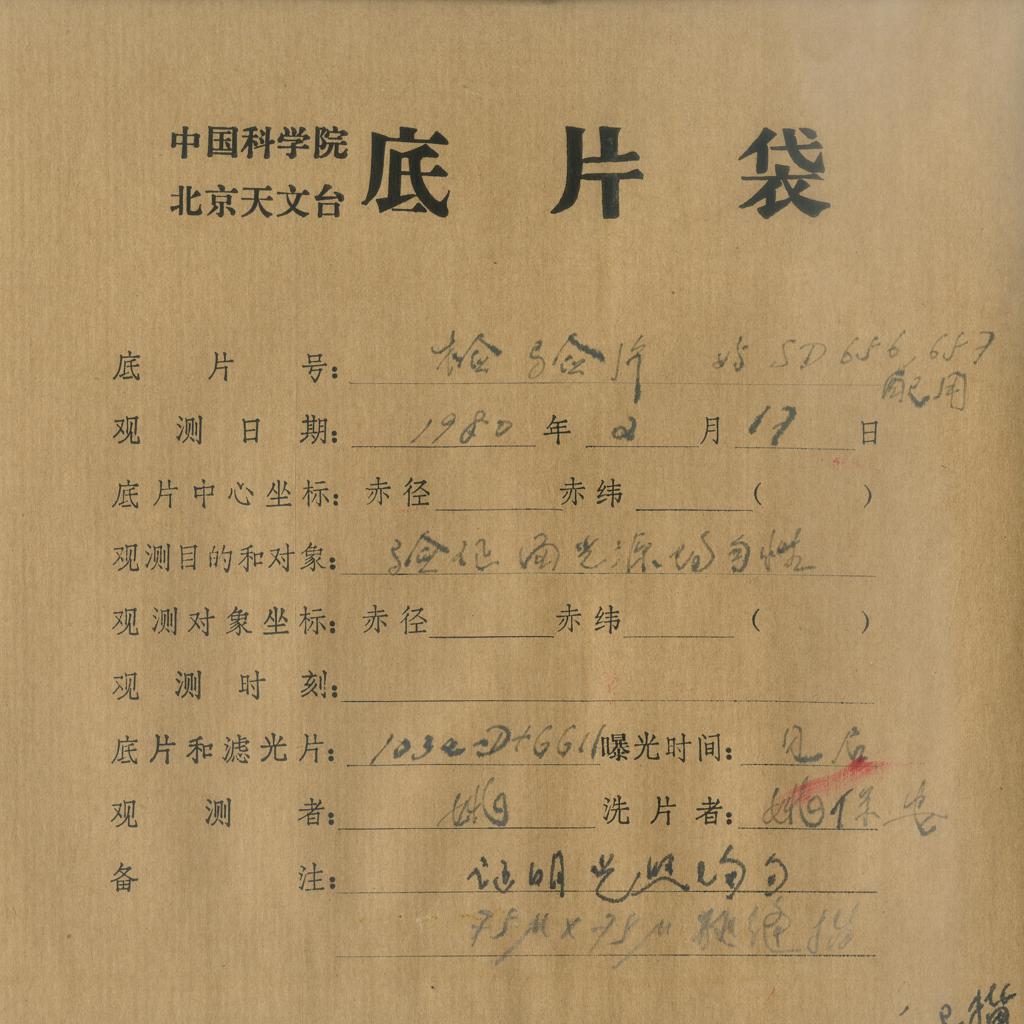 中国科学院
北京天文台
底片袋
底片号: 检验片 与SD 656, 657
配用
观测日期: 1980年2月17日
底片中心坐标: 赤径 赤纬 ( )
观测目的和对象: 验证面光源均匀性
观测对象坐标: 赤径 赤纬 ( )
观测时刻:
底片和滤光片: 103a-D+GG11 曝光时间: 见后
观测者: 姚 洗片者: 姚保安
备注: 证明光照均匀
75μ×75μ 狭缝扫